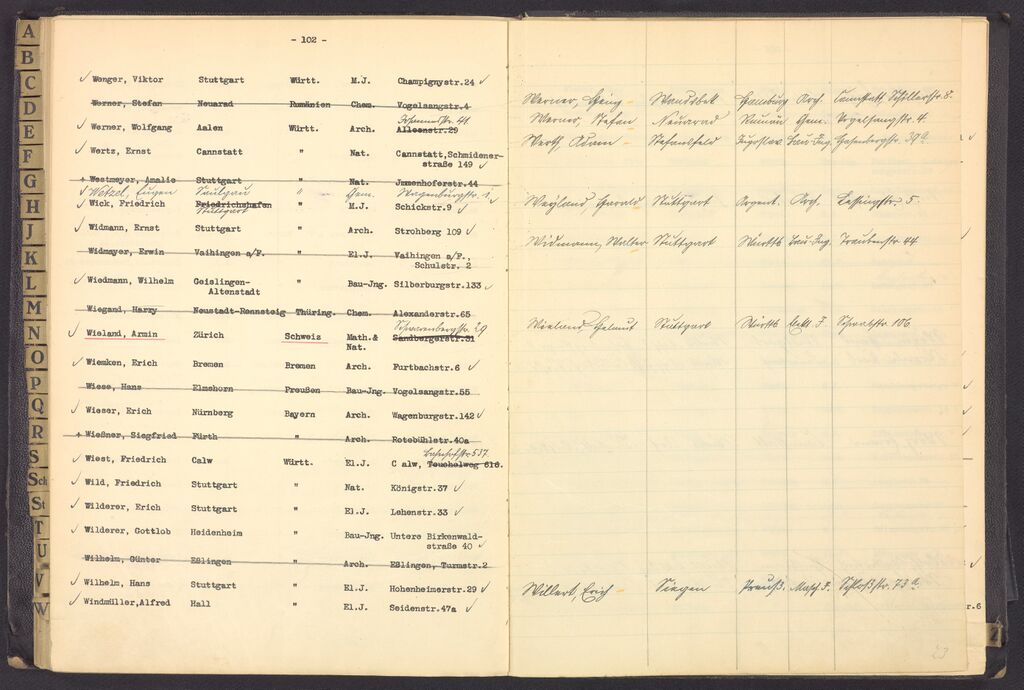 A
B
C
D
E
F
G
H
J
K
L
M
N
O
P
Q
R
S
Sch
St
T
U
V
W
Z
- 102 -
✓ Wenger, Viktor Stuttgart Württ. M.J. Champignystr.24 ✓
Werner, Stefan Neuarad Rumänien Chem. Vogelsangstr.4
Johannesstr. 41
✓ Werner, Wolfgang Aalen Württ. Arch. Alleenstr.29
✓ Wertz, Ernst Cannstatt " Nat. Cannstatt,Schmidener-
straße 149 ✓
+ Westmeyer, Amalie Stuttgart " Nat. Immenhoferstr.44
✓ Wetzel, Eugen Saulgau " Gem. Wagenburgstr.
✓ Wick, Friedrich Friedrichshafen " M.J. Schickstr.9 ✓
Stuttgart
✓ Widmann, Ernst Stuttgart " Arch. Strohberg 109 ✓
Widmayer, Erwin Vaihingen a/F. " El.J. Vaihingen a/F.,
Schulstr. 2
✓ Wiedmann, Wilhelm Geislingen- " Bau-Jng. Silberburgstr.133 ✓
Altenstadt
Wiegand, Harzy Neustadt-Rennsteig Thüring. Chem. Alexanderstr.65
29
✓ Wieland, Armin Zürich Schweiz Math.& Sandbergerstr.31
Nat.
✓ Wiemken, Erich Bremen Bremen Arch. Furtbachstr.6 ✓
Wiese, Hans Elmshorn Preußen Bau-Jng. Vogelsangstr.55
✓ Wieser, Erich Nürnberg Bayern Arch. Wagenburgstr.142 ✓
+ Wießner, Siegfried Fürth " Arch. Rotebühlstr.40a
Bahnhofstr. 537.
✓ Wiest, Friedrich Calw Württ. El.J. C alw, Teuchelweg 616.
✓ Wild, Friedrich Stuttgart " Nat. Königstr.37 ✓
✓ Wilderer, Erich Stuttgart " El.J. Lehenstr.33 ✓
✓ Wilderer, Gottlob Heidenheim " Bau-Jng. Untere Birkenwald-
straße 40 ✓
Wilhelm, Günter Eßlingen " Arch. Eßlingen, Turmstr.2
✓ Wilhelm, Hans Stuttgart " El.J. Hohenheimerstr.29 ✓
✓ Windmüller,Alfred Hall " El.J. Seidenstr.47a ✓
Werner, Wandsbek Hamburg Arch. Cannstatt, Schillerstr. 8.
Werner, Stefan Neuarad Rumän. Chem. Vogelsangstr. 4.
Werth, Adam Stefansfeld Jugoslav. Bau-Ing. Hasenbergstr. 39a
Weyland, Harald Stuttgart Argent. Arch. Lessingstr. 5.
Widmann, Walter Stuttgart Württb. Bau-Ing. Traubenstr. 44
Wieland, Helmut Stuttgart Württb. Elekt. I. Schwabstr. 106
Willert, Erich Siegen Preuß. Masch. I. Schloßstr. 73a
r.6